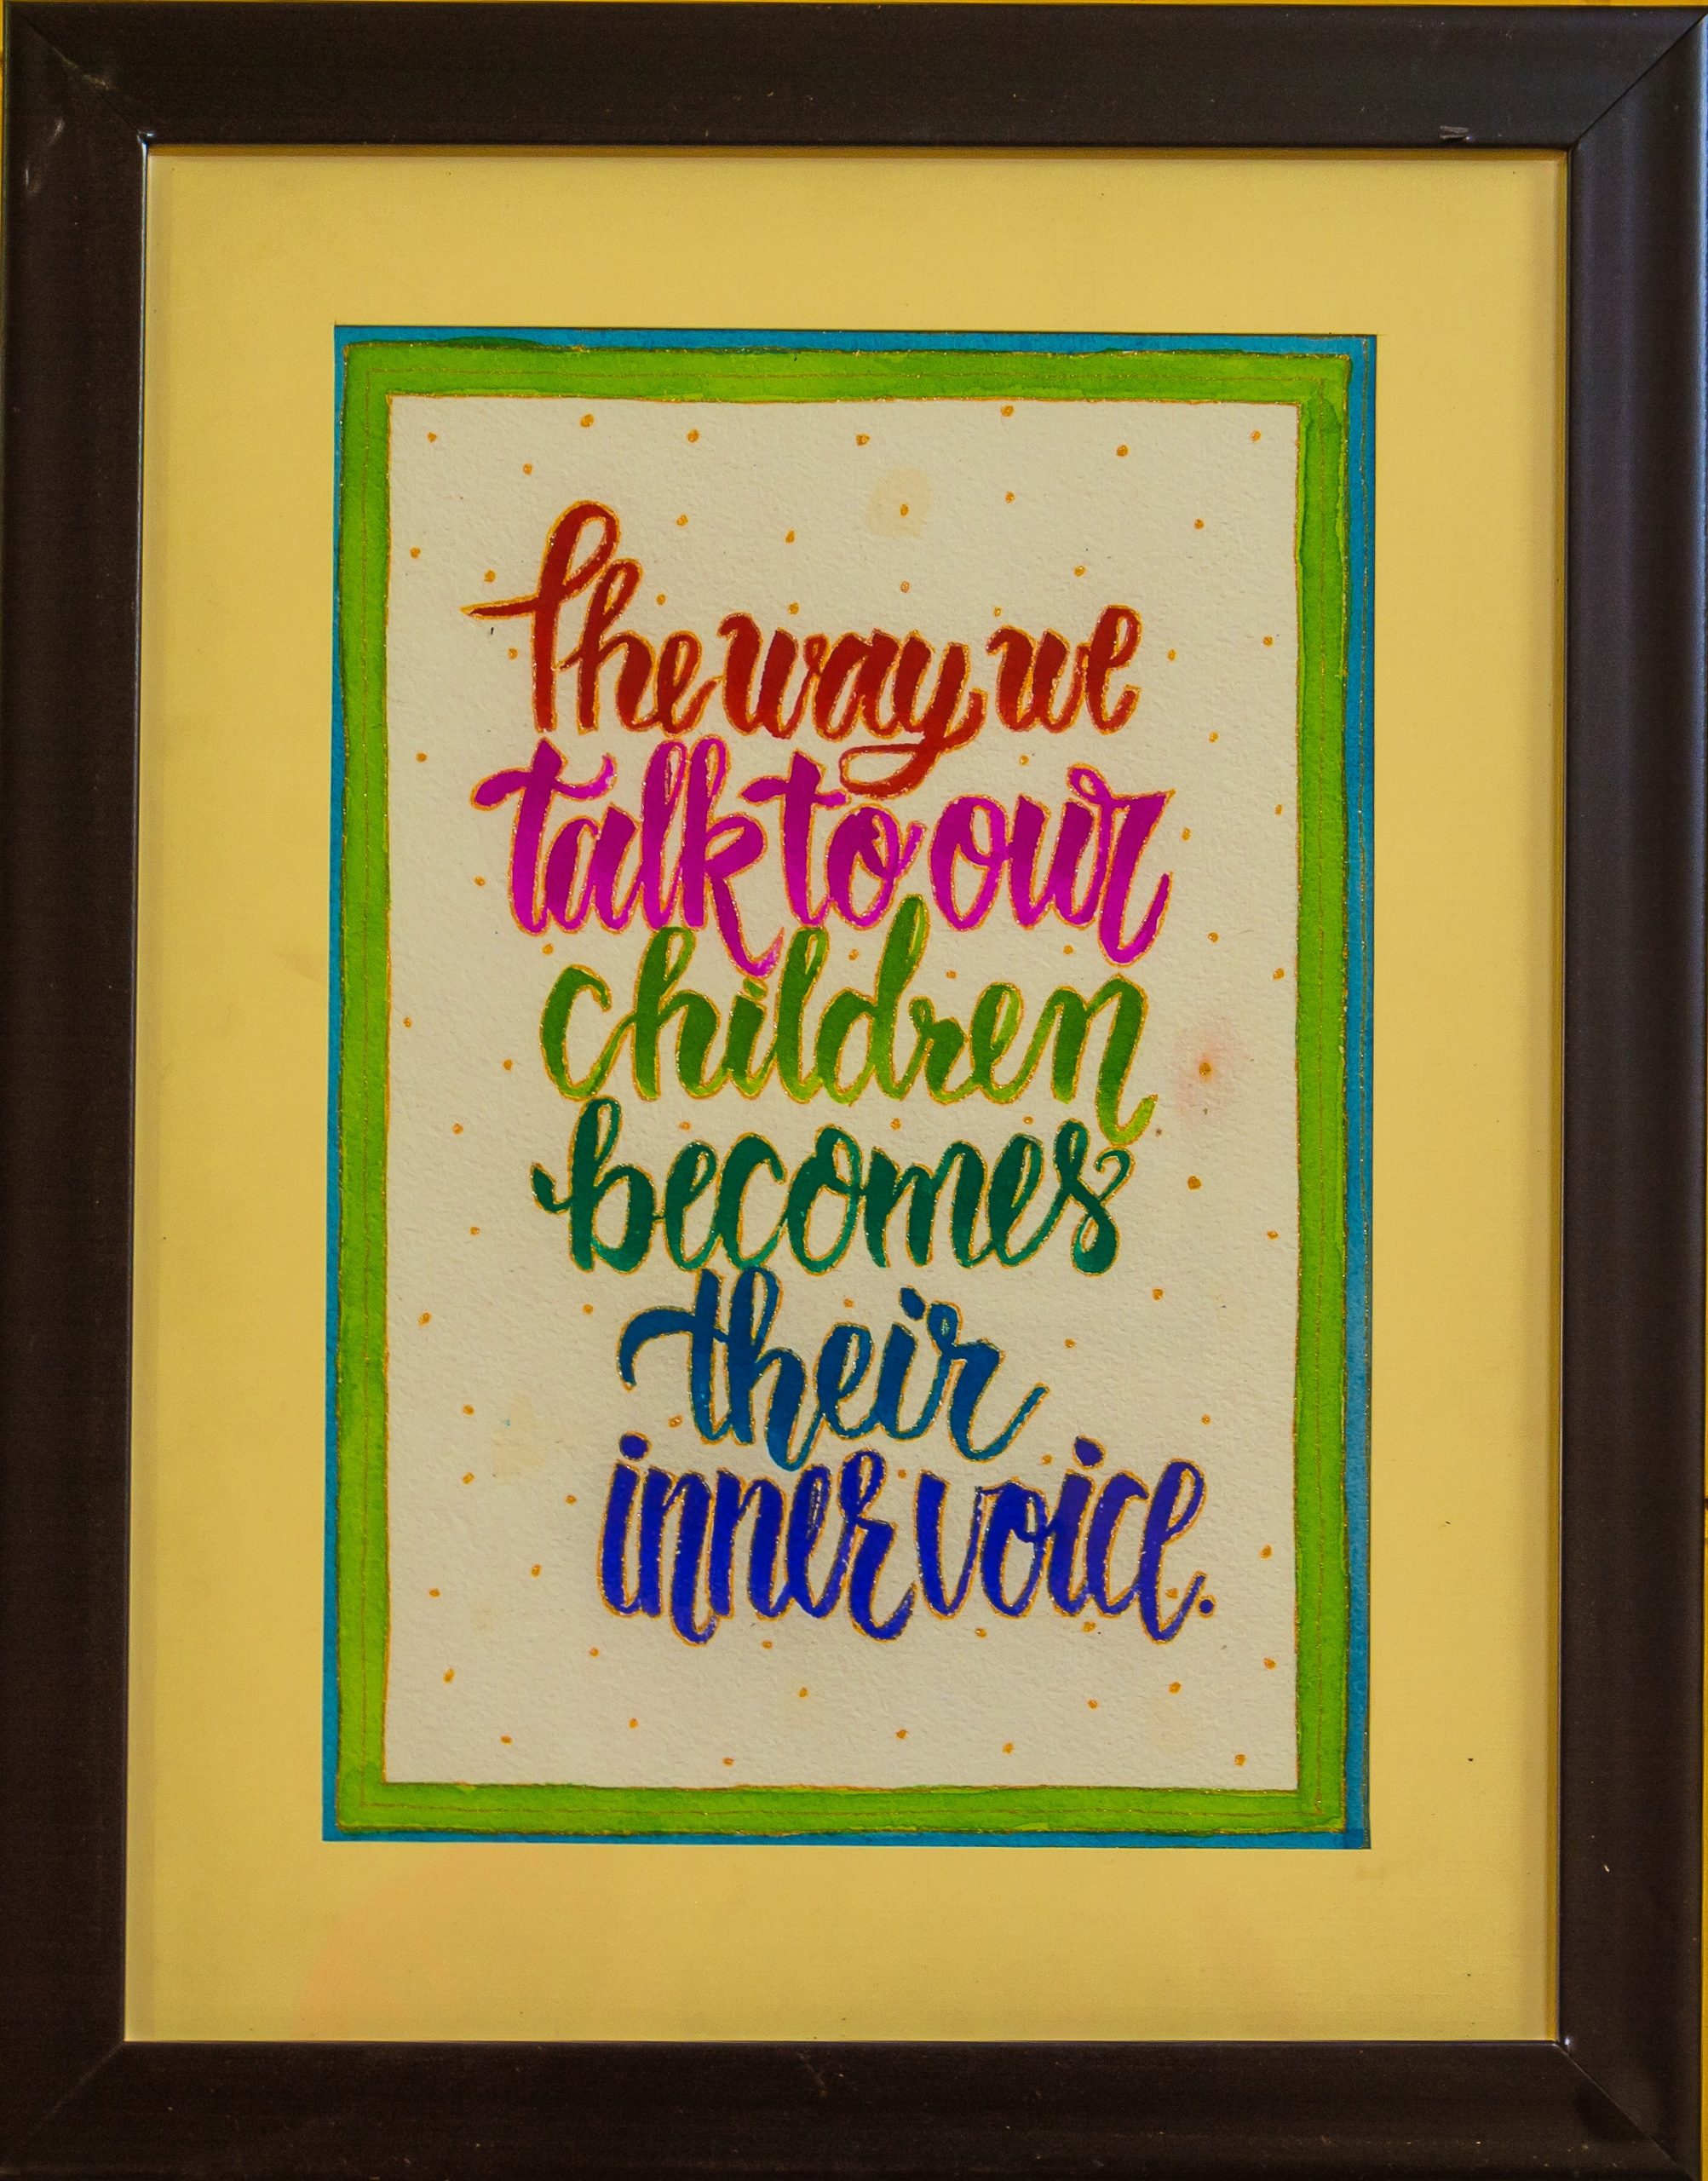 The way we
talk to our
children
becomes
their
inner voice.